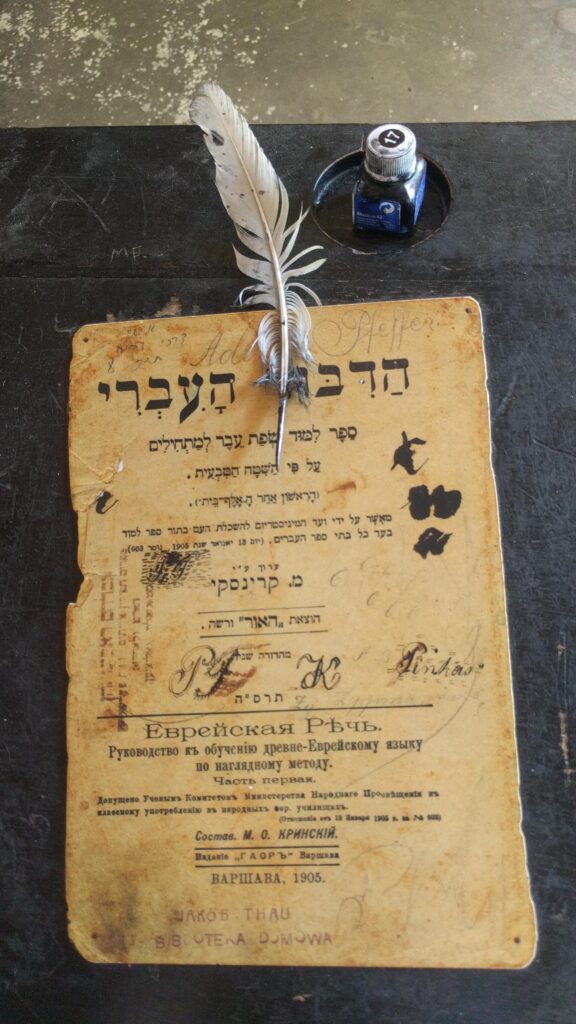 17
ME
Pfeffer
הָעִבְרִי
סֵפֶר לִמּוּד שְׂפַת עֵבֶר לְמַתְחִילִים
עַל פִּי הַשִּׁטָּה הַטִּבְעִית.
(הָרִאשׁוֹן אַחַר הָאָלֶף־בֵּית״).
מאֻשָּׁר על ידי ועד המיניסטריום להשכלת העם בתור ספר למוד
בעד כל בתי ספר העברים. (יום 13 יאנואר שנת 1905, נומר 603)
ערוך ע״י
מ. קרינסקי
הוצאת „האור" ורשה.
מהדורה
Pf K Pinkas
תרס״ה
Еврейская Рѣчь.
Руководство къ обученію древне-Еврейскому языку
по наглядному методу.
Часть первая.
Допущено Ученымъ Комитетомъ Министерства Народнаго Просвѣщенія къ
классному употребленію въ народныхъ евр. училищахъ.
(Отношеніе отъ 13 Января 1905 г. за № 603)
Состав. М. О. КРИНСКІЙ.
Изданіе „ГАОРЪ" Варшава
ВАРШАВА, 1905.
JAKÓB THAU
BIBLIOTEKA DOMOWA